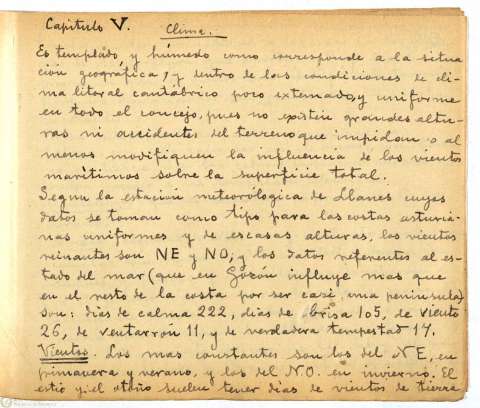 Capitulo V. Clima.
Es templado, y húmedo como corresponde a la situa
ción geográfica, y dentro de las condiciones de cli-
ma litoral cantábrico poco extemado, y uniforme
en todo el concejo, pues no existen grandes altu-
ras ni accidentes del terreno que impidan o al
menos modifiquen la influencia de los vientos
maritimos sobre la superficie total.
Segun la estación meteorólogica de Llanes cuyos
datos se toman como tipo para las costas asturia-
nas uniformes y de escasas alturas, los vientos
reinantes son NE y NO, y los datos referentes al es-
tado del mar (que en Gozón influye mas que
en el resto de la costa por ser casi, una peninsula)
son: dias de calma 222, dias de brisa 105, de viento
26, de ventarrón 11, y de verdadera tempestad 17.
Vientos. Los mas constantes son los del NE, en
primavera y verano, y los del NO. en invierno. El
estio y el otoño suelen tener dias de vientos de tierra